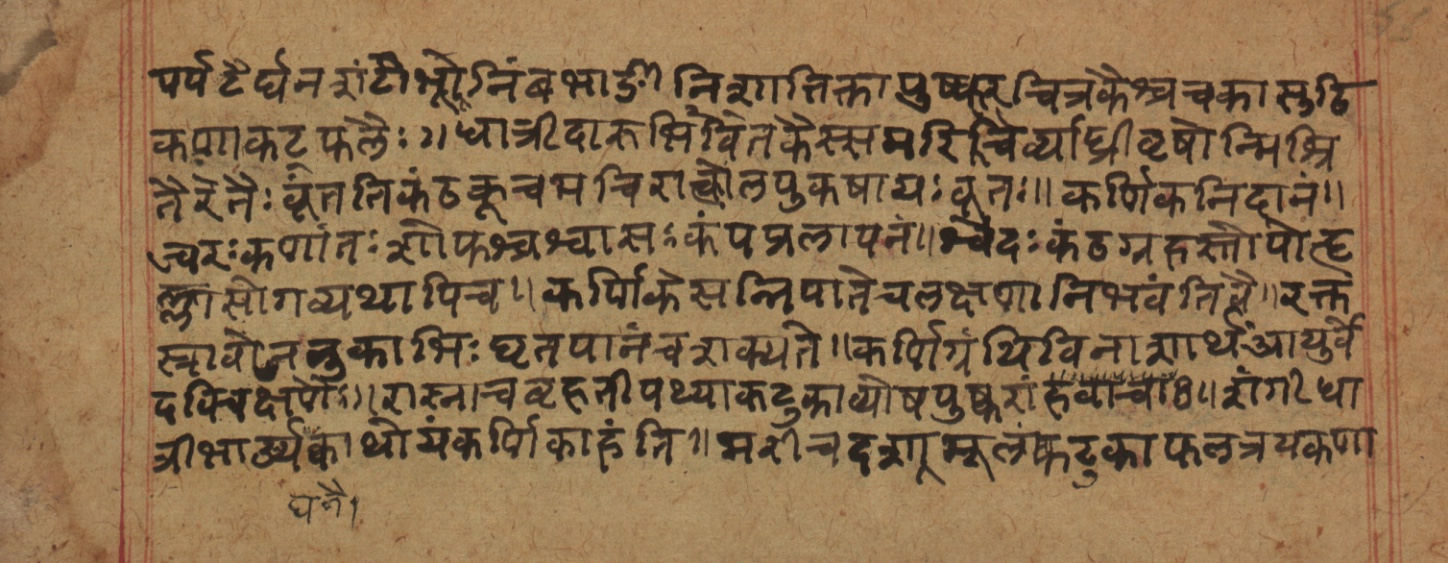 पर्पटैर्घनशंटीभूनिंबभार्ङी निशातिक्तापुष्करचित्रकैश्चचकास्तृटि
कणाकट्फलैः॥धात्रीदारुभिर्वितकैस्समरिचैर्व्याघ्रीवृषोन्मिश्रि
तैरेतैः कृतति कंठकूचमचिराच्छोलपुकषायः कृतः॥ कर्णिकनिदानं॥
ज्वरः कर्णांतः शोफश्चश्वासः कंपप्रलापनं॥ श्वेदः कंठग्रहस्तापोत्ह
ल्लासोगव्यथापिच॥ कर्णिकेसन्निपातेचलक्षणानिभवंतिवै॥ रक्त
स्त्रावोजलुकाभिः घृतपानंचशक्यते॥ कर्णिग्रंथिविनाशार्थंआयुर्वे
दविचक्षणैः॥ रास्नाचबृहतीपथ्याकटुकाव्योषपुष्करां॥ शृंगीधा
त्रीभार्ङ्यकाथोयंकर्णिकाहंति॥ मरीचदशमूलंकटुकाफलत्रयकणा
घनै।